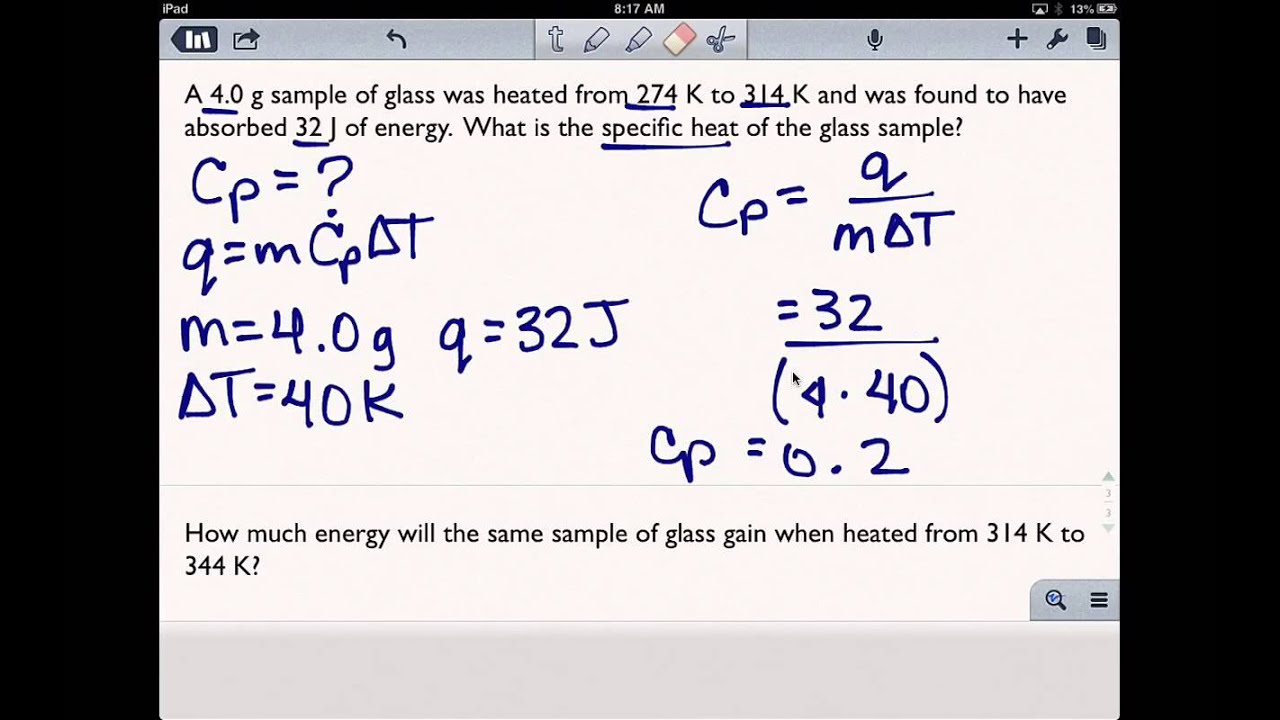 iPad 8:17 AM 13%
t
A 4.0 g sample of glass was heated from 274 K to 314 K and was found to have
absorbed 32 J of energy. What is the specific heat of the glass sample?
Cp = ?
q = m Cp ΔT
m = 4.0 g q = 32 J
ΔT = 40 K
Cp = q
mΔT
= 32
(4 · 40)
Cp = 0.2
3
3
How much energy will the same sample of glass gain when heated from 314 K to
344 K?